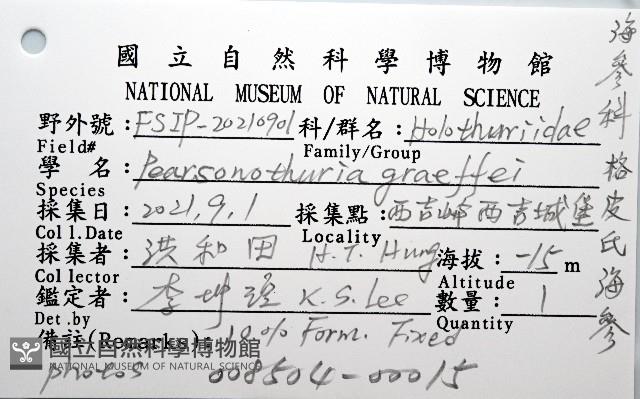 國立自然科學博物館
NATIONAL MUSEUM OF NATURAL SCIENCE
野外號：FSIP-20210901 科/群名：Holothuriidae
Field# Family/Group
學 名：Pearsonothuria graeffei
Species
採集日：2021,9,1 採集點：西吉嶼西吉城堡
Coll.Date Locality
採集者：洪和田 H.T. Hung 海拔：-15 m
Collector Altitude
鑑定者：李坤瑄 K.S. Lee 數量：1
Det.by Quantity
備註(Remarks)：10% Form. Fixed
photos 008504-00015
海參科 格皮氏海參
國立自然科學博物館
NATIONAL MUSEUM OF NATURAL SCIENCE